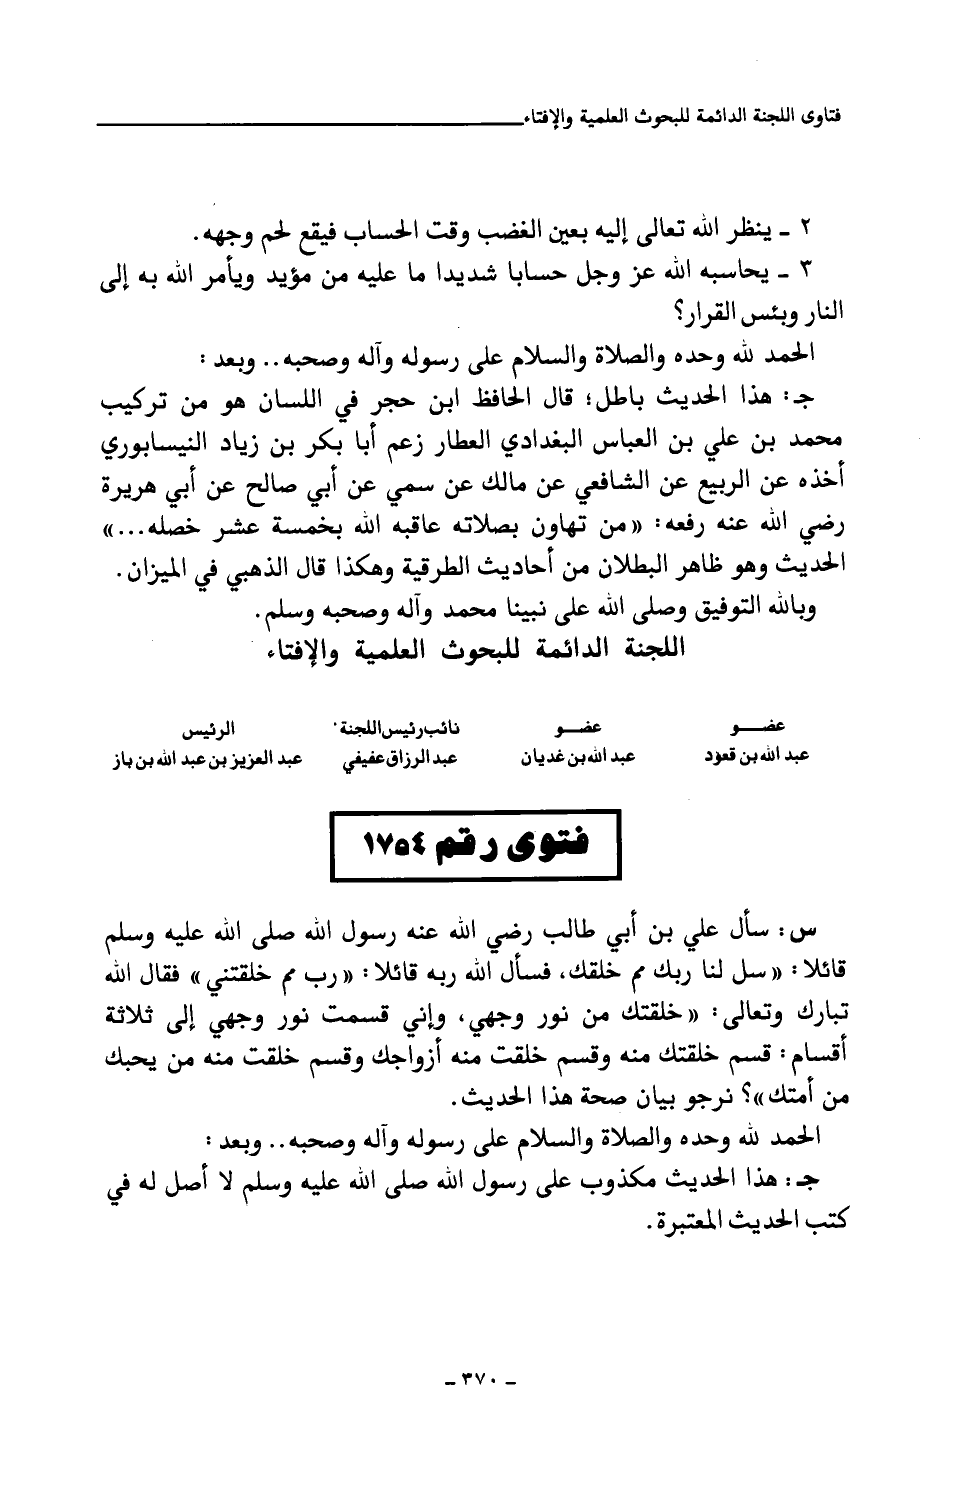 فتاوى اللجنة الدائمة للبحوث العلمية والإفتاء
٢ ـ ينظر الله تعالى إليه بعين الغضب وقت الحساب فيقع لحم وجهه.
٣ ـ يحاسبه الله عز وجل حسابا شديدا ما عليه من مؤيد ويأمر الله به إلى
النار وبئس القرار؟
الحمد لله وحده والصلاة والسلام على رسوله وآله وصحبه.. وبعد:
جـ: هذا الحديث باطل؛ قال الحافظ ابن حجر في اللسان هو من تركيب
محمد بن علي بن العباس البغدادي العطار زعم أبا بكر بن زياد النيسابوري
أخذه عن الربيع عن الشافعي عن مالك عن سمي عن أبي صالح عن أبي هريرة
رضي الله عنه رفعه: «من تهاون بصلاته عاقبه الله بخمسة عشر خصله...»
الحديث وهو ظاهر البطلان من أحاديث الطرقية وهكذا قال الذهبي في الميزان.
وبالله التوفيق وصلى الله على نبينا محمد وآله وصحبه وسلم.
اللجنة الدائمة للبحوث العلمية والإفتاء
عضــو عضــو نائب رئيس اللجنة الرئيس
عبد الله بن قعود عبد الله بن غديان عبد الرزاق عفيفي عبد العزيز بن عبد الله بن باز
فتوى رقم ١٧٥٤
س: سأل علي بن أبي طالب رضي الله عنه رسول الله صلى الله عليه وسلم
قائلا: «سل لنا ربك مم خلقك، فسأل الله ربه قائلا: «رب مم خلقتني» فقال الله
تبارك وتعالى: «خلقتك من نور وجهي، وإني قسمت نور وجهي إلى ثلاثة
أقسام: قسم خلقتك منه وقسم خلقت منه أزواجك وقسم خلقت منه من يحبك
من أمتك»؟ نرجو بيان صحة هذا الحديث.
الحمد لله وحده والصلاة والسلام على رسوله وآله وصحبه.. وبعد:
جـ: هذا الحديث مكذوب على رسول الله صلى الله عليه وسلم لا أصل له في
كتب الحديث المعتبرة.
ـ ٣٧٠ ـ